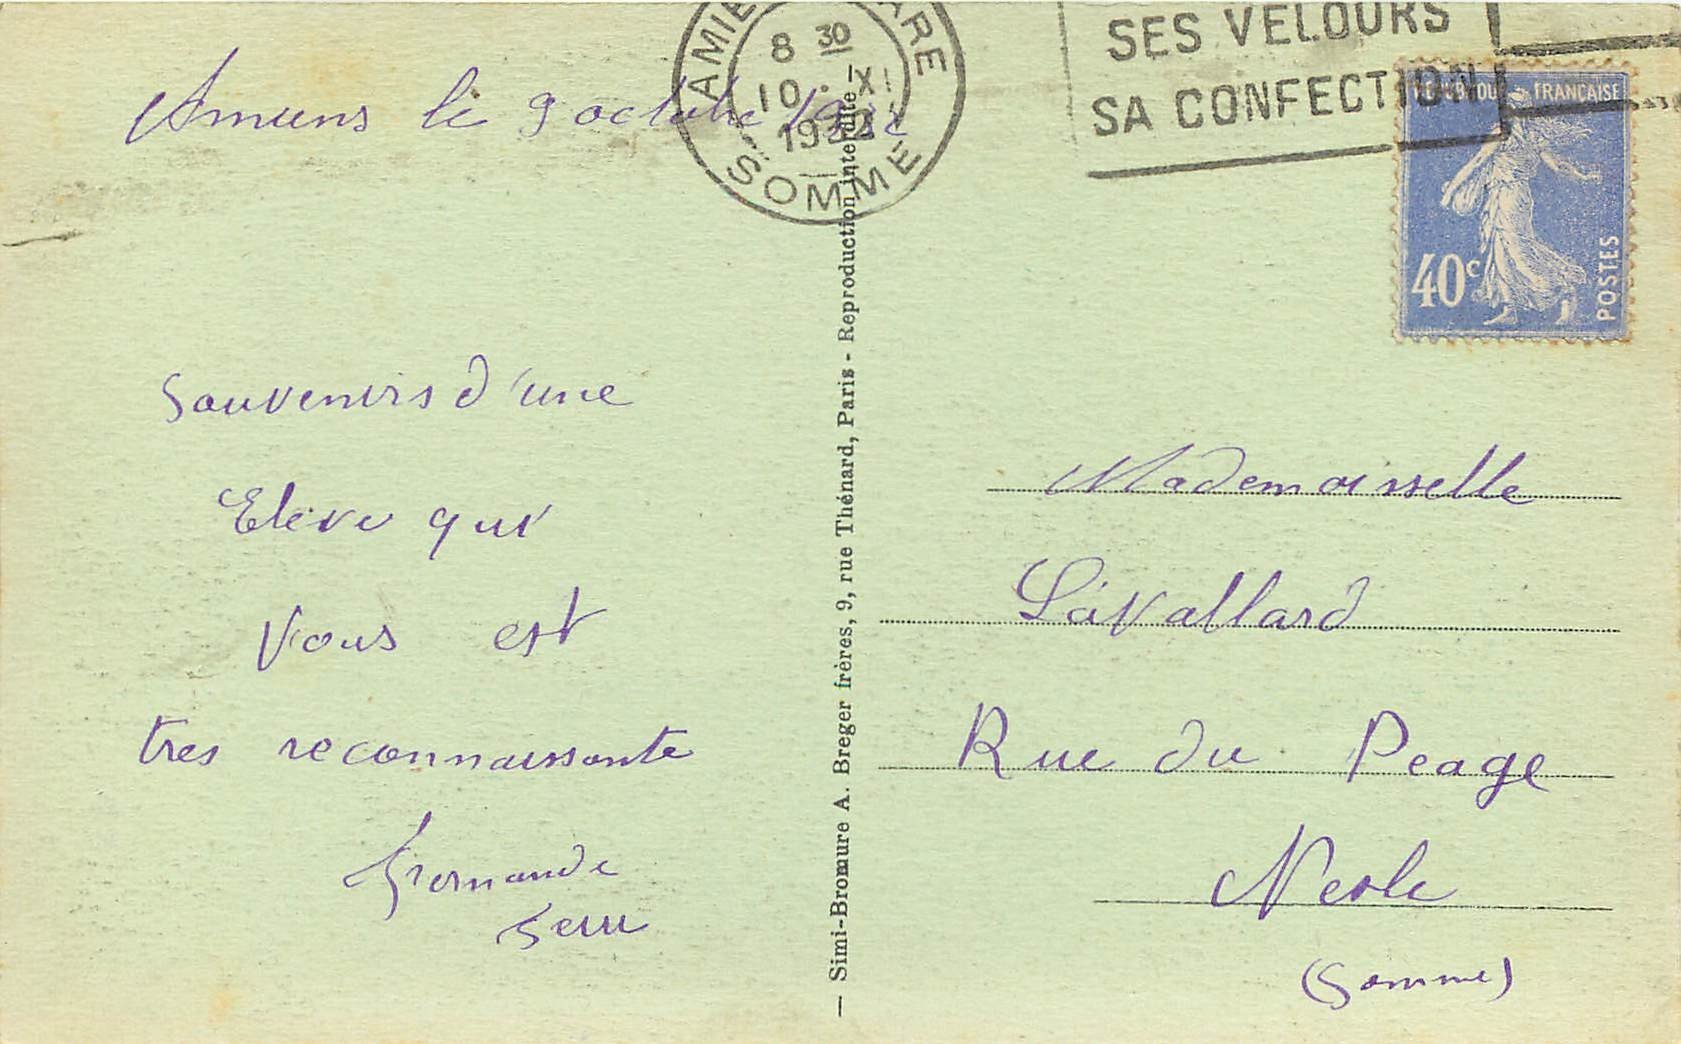 AMIENS GARE
8 30
10 · X
SOMME
SES VELOURS
SA CONFECTION
FRANÇAISE
40c
POSTES
Amiens le 9 octobre
Souvenirs d'une
Eleve qui
Vous est
tres reconnaissante
Fernande
— Simi-Bromure A. Breger frères, 9, rue Thénard, Paris - Reproduction interdite —
Mademoiselle
Lavallard
Rue du Peage
Nesle
(Somme)